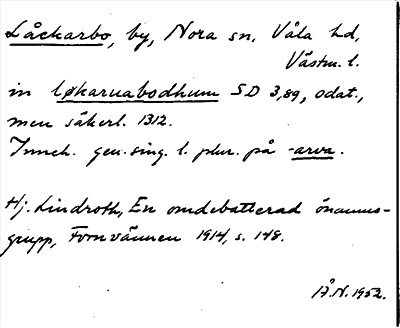 Låckarbo, by, Nora sn, Våla hd,
Västm. l.
in løkaruabodhum SD 3,89, odat.,
men säkerl. 1312.
Inneh. gen. sing. l. plur. på -arva.
Hj. Lindroth, En omdebatterad önamns-
grupp, Fornvännen 1914, s. 148.
Å.N. 1952.